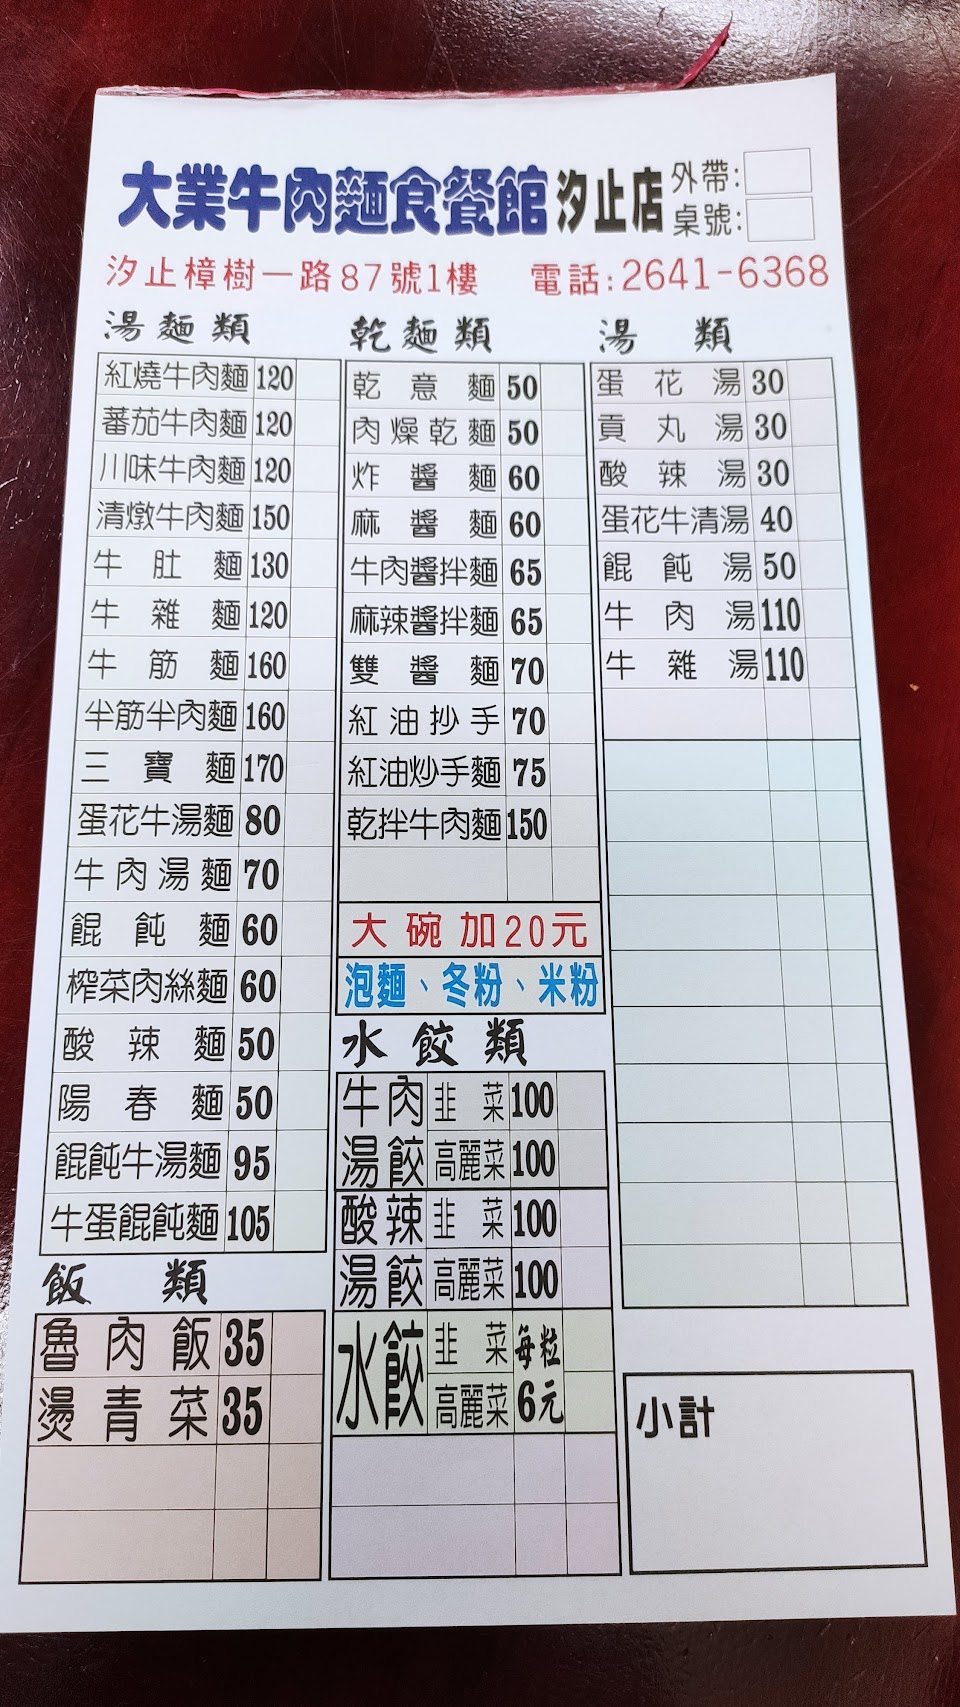 大業牛肉麵食餐館 汐止店
外帶:
桌號:
汐止樟樹一路87號1樓 電話:2641-6368
湯麵類
紅燒牛肉麵 120
蕃茄牛肉麵 120
川味牛肉麵 120
清燉牛肉麵 150
牛肚麵 130
牛雜麵 120
牛筋麵 160
半筋半肉麵 160
三寶麵 170
蛋花牛湯麵 80
牛肉湯麵 70
餛飩麵 60
榨菜肉絲麵 60
酸辣麵 50
陽春麵 50
餛飩牛湯麵 95
牛蛋餛飩麵 105
飯類
魯肉飯 35
燙青菜 35
乾麵類
乾意麵 50
肉燥乾麵 50
炸醬麵 60
麻醬麵 60
牛肉醬拌麵 65
麻辣醬拌麵 65
雙醬麵 70
紅油抄手 70
紅油炒手麵 75
乾拌牛肉麵 150
大碗加20元
泡麵、冬粉、米粉
水餃類
牛肉湯餃 韭菜 100
高麗菜 100
酸辣湯餃 韭菜 100
高麗菜 100
水餃 韭菜 每粒
高麗菜 6元
湯類
蛋花湯 30
貢丸湯 30
酸辣湯 30
蛋花牛清湯 40
餛飩湯 50
牛肉湯 110
牛雜湯 110
小計